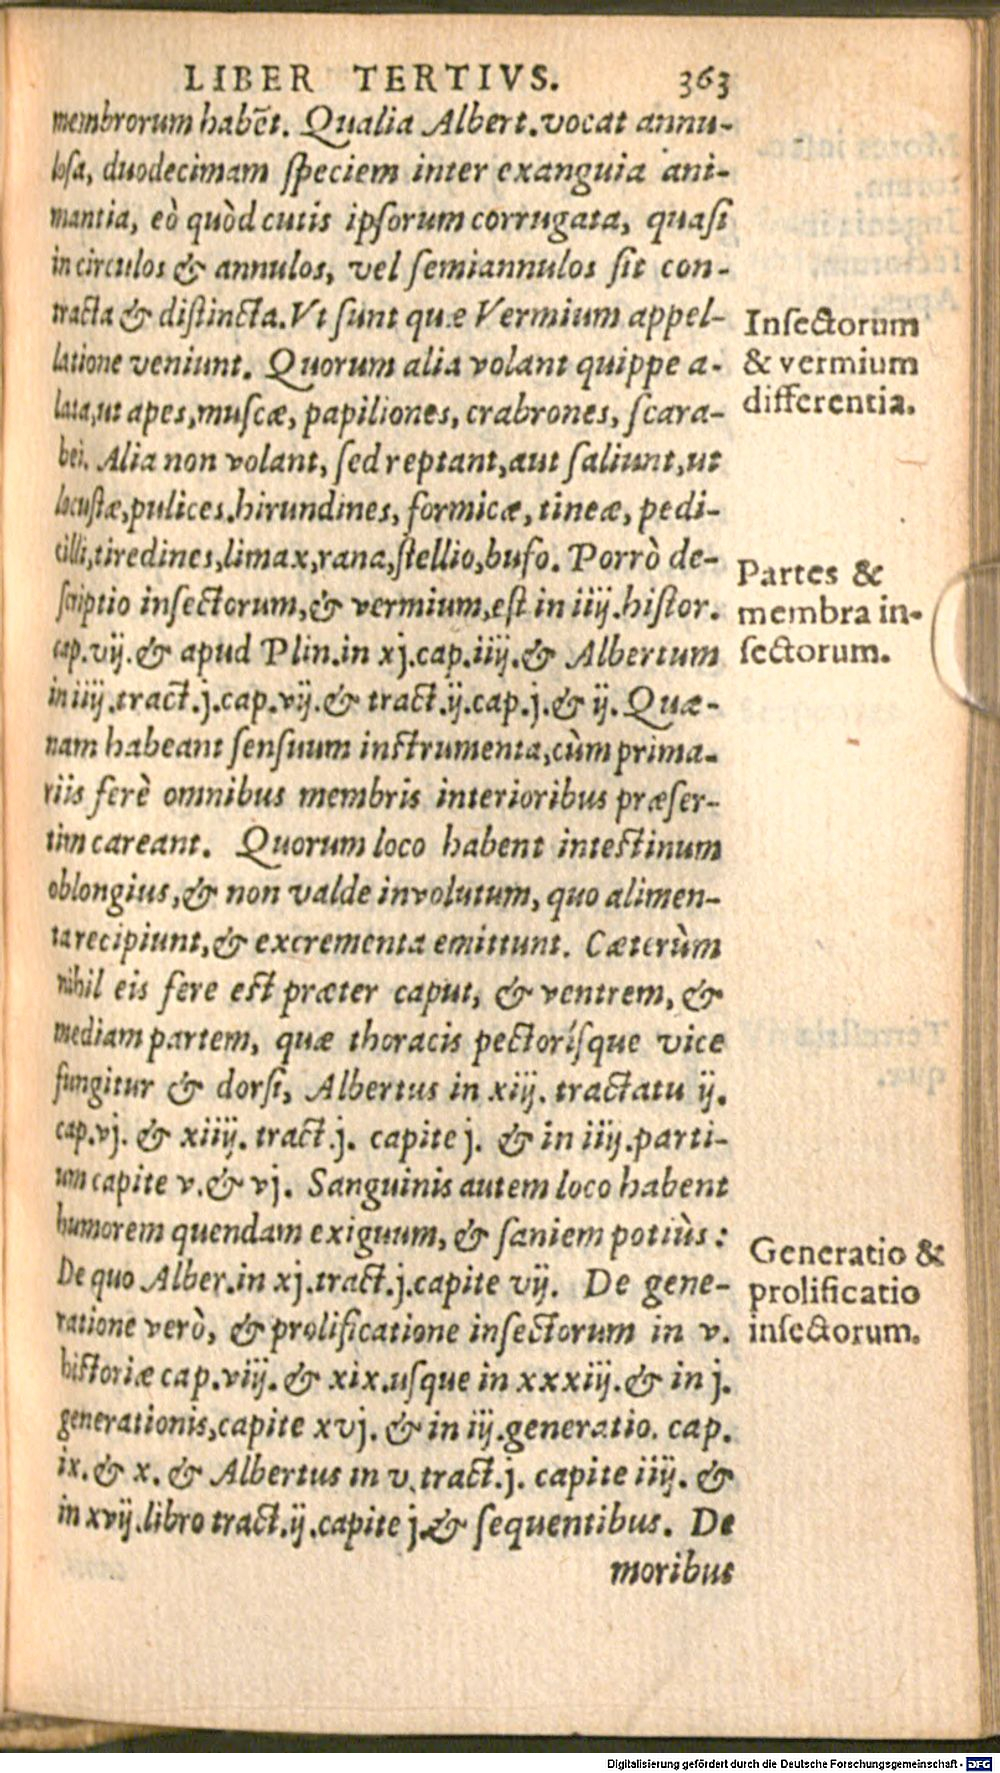 LIBER TERTIVS. 363
membrorum habēt. Qualia Albert. vocat annu-
losa, duodecimam speciem inter exanguia ani-
mantia, eò quòd cutis ipsorum corrugata, quasi
in circulos & annulos, vel semiannulos sit con-
tracta & distincta. Vt sunt quæ Vermium appel-
latione veniunt. Quorum alia volant quippe a-
lata, ut apes, muscæ, papiliones, crabrones, scara-
bei. Alia non volant, sed reptant, aut saliunt, ut
locustæ, pulices. hirundines, formicæ, tineæ, pedi-
cilli, tiredines, limax, rana, stellio, bufo. Porrò de-
scriptio insectorum, & vermium, est in iiij. histor.
cap. vij. & apud Plin. in xj. cap. iiij. & Albertum
in iiij. tract. j. cap. vij. & tract. ij. cap. j. & ij. Quæ-
nam habeant sensuum instrumenta, cùm prima-
riis ferè omnibus membris interioribus præser-
tim careant. Quorum loco habent intestinum
oblongius, & non valde involutum, quo alimen-
ta recipiunt, & excrementa emittunt. Cæterùm
nihil eis fere est præter caput, & ventrem, &
mediam partem, quæ thoracis pectorísque vice
fungitur & dorsi, Albertus in xiij. tractatu ij.
cap. vj. & xiiij. tract. j. capite j. & in iiij. parti-
um capite v. & vj. Sanguinis autem loco habent
humorem quendam exiguum, & saniem potiùs:
De quo Alber. in xj. tract. j. capite vij. De gene-
ratione verò, & prolificatione insectorum in v.
historiæ cap. viij. & xix. usque in xxxiij. & in j.
generationis, capite xvj. & in iij. generatio. cap.
ix. & x. & Albertus in v. tract. j. capite iiij. &
in xvij. libro tract. ij. capite j. & sequentibus. De
moribus
Insectorum
& vermium
differentia.
Partes &
membra in-
sectorum.
Generatio &
prolificatio
insectorum.
Digitalisierung gefördert durch die Deutsche Forschungsgemeinschaft - DFG